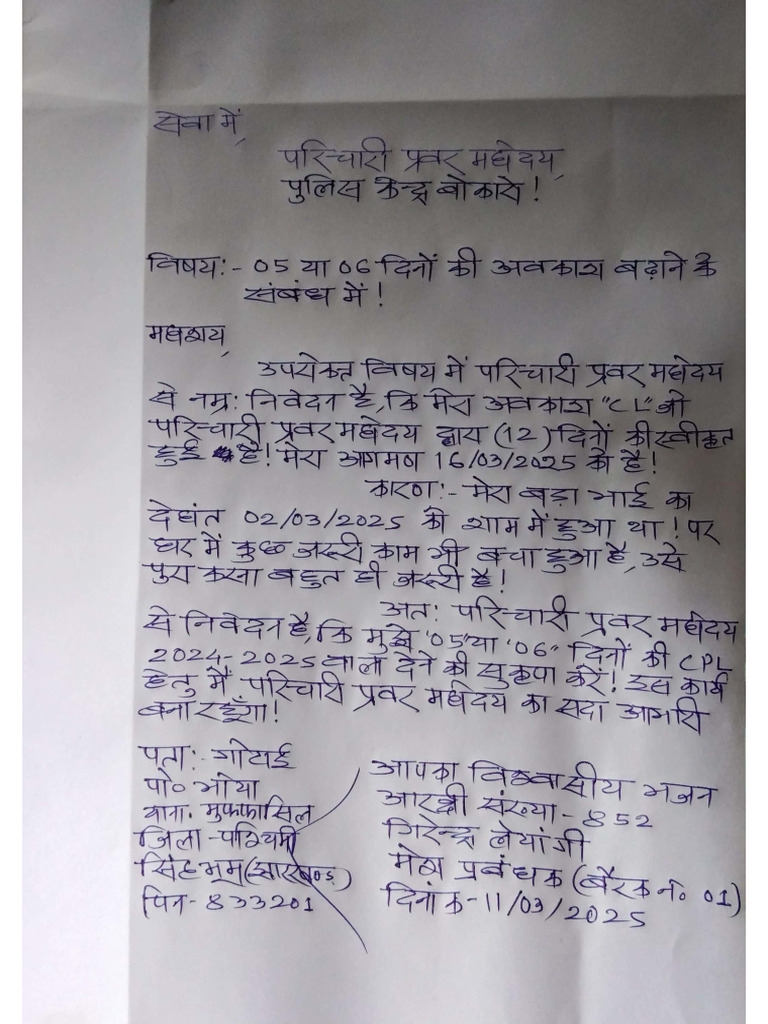 सेवा में,
परिचारी प्रवर महोदय,
पुलिस केन्द्र बोकारो!
विषय:- 05 या 06 दिनों की अवकाश बढ़ाने के
संबंध में!
महाशय,
उपरोक्त विषय में परिचारी प्रवर महोदय
से नम्र: निवेदन है, कि मेरा अवकाश "CL" जो
परिचारी प्रवर महोदय द्वारा (12) दिनों की स्वीकृत
हुई है! मेरा आगमण 16/03/2025 को है!
कारण:- मेरा बड़ा भाई का
देहांत 02/03/2025 को शाम में हुआ था! पर
घर में कुछ जरूरी काम भी बचा हुआ है, उसे
पुरा करना बहुत ही जरूरी है!
अत: परिचारी प्रवर महोदय
से निवेदन है, कि मुझे "05" या "06" दिनों की CPL
2024-2025 वाला देने की सुकृपा करें! इस कार्य
हेतु मैं परिचारी प्रवर महोदय का सदा आभारी
बना रहूँगा!
पता:- गोटाई
पो० भोया
थाना. मुफ्फासिल
जिला - पश्चिमी
सिंहभूम (झारखण्ड)
पिन - 833201
आपका विश्वासीय भजन
आरक्षी संख्या - 852
गिरेन्द्र लेयांगी
मेस प्रबंधक (बैरक नं० 01)
दिनांक - 11/03/2025